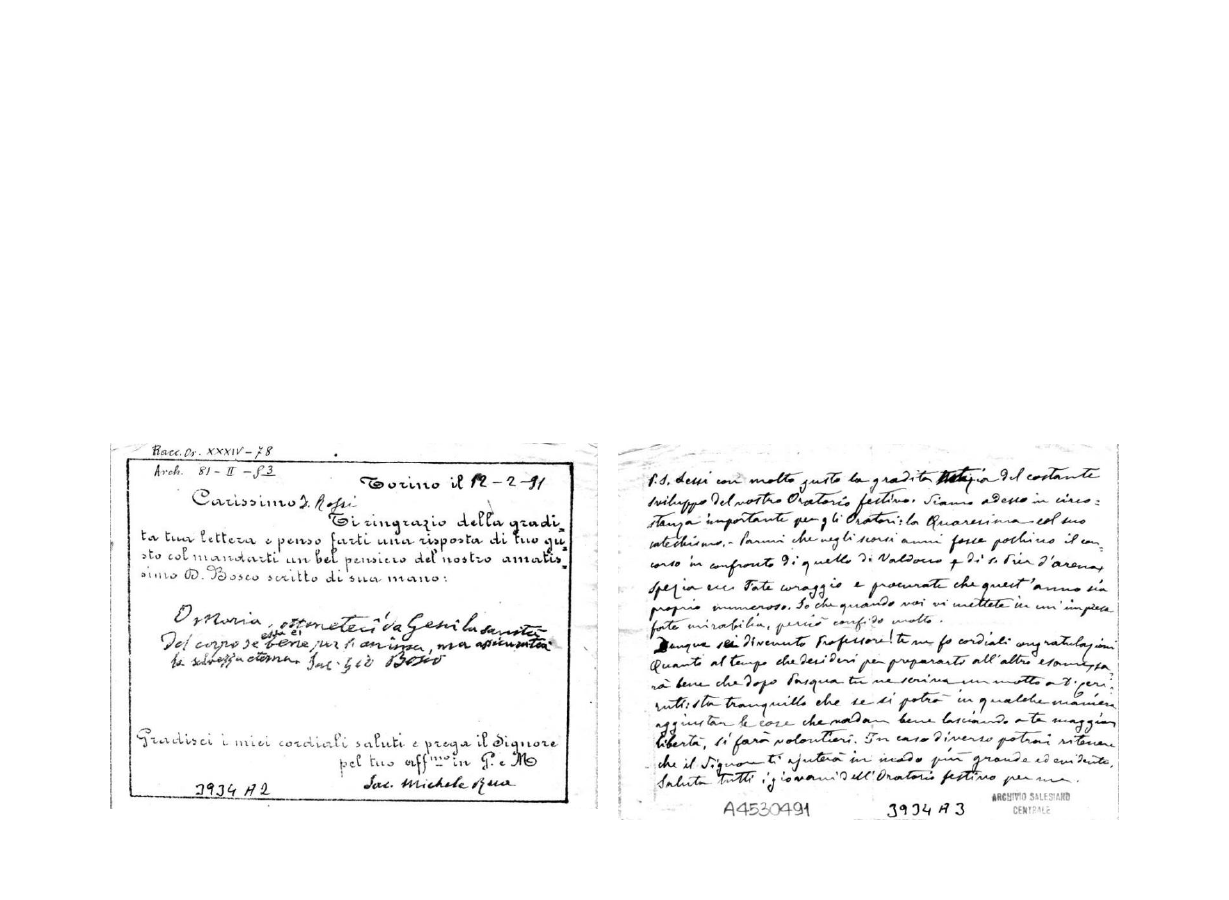 Racc. Or. XXXIV - 78
Arch. 81 - II - 93
Torino il 12-2-91
Carissimo D. Rossi
Ti ringrazio della gradi-
ta tua lettera e penso farti una risposta di tuo gu-
sto col mandarti un bel pensiero del nostro amatis-
simo D. Bosco scritto di sua mano:
O Maria, otteneteci da Gesù la sanità
del corpo se essa è bene per l'anima, ma assicurateci
la salvezza eterna Sac. Gio Bosco
Gradisci i miei cordiali saluti e prega il Signore
pel tuo aff.mo in G. e M
Sac. Michele Rua
3934 A 2
P.S. Lessi con molto gusto la gradita notizia del costante
sviluppo del vostro Oratorio festivo. Siamo adesso in circo-
stanza importante per gli Oratori: la Quaresima col suo
catechismo. - Parmi che negli scorsi anni fosse pochino il con-
corso in confronto di quello di Valdocco e di S. Pier d'arena,
Spezia ecc. Fate coraggio e procurate che quest'anno sia
proprio numeroso. So che quando voi vi mettete in un'impresa
fate mirabilia, perciò confido molto.
Dunque sei divenuto Professore! te ne fo cordiali congratulazioni
Quanto al tempo che desideri per prepararti all'altro esame sa-
rà bene che dopo Pasqua tu ne scriva un motto a D.
sta tranquillo che se si potrà in qualche maniera
aggiustar le cose che vadan bene lasciando a te maggior
libertà, si farà volontieri. In caso diverso potrai ritenere
che il Signore ti ajuterà in modo più grande ed evidente.
Saluta tutti i giovani dell'Oratorio festivo per me.
A4530491
3934 A 3
ARCHIVIO SALESIANO
CENTRALE